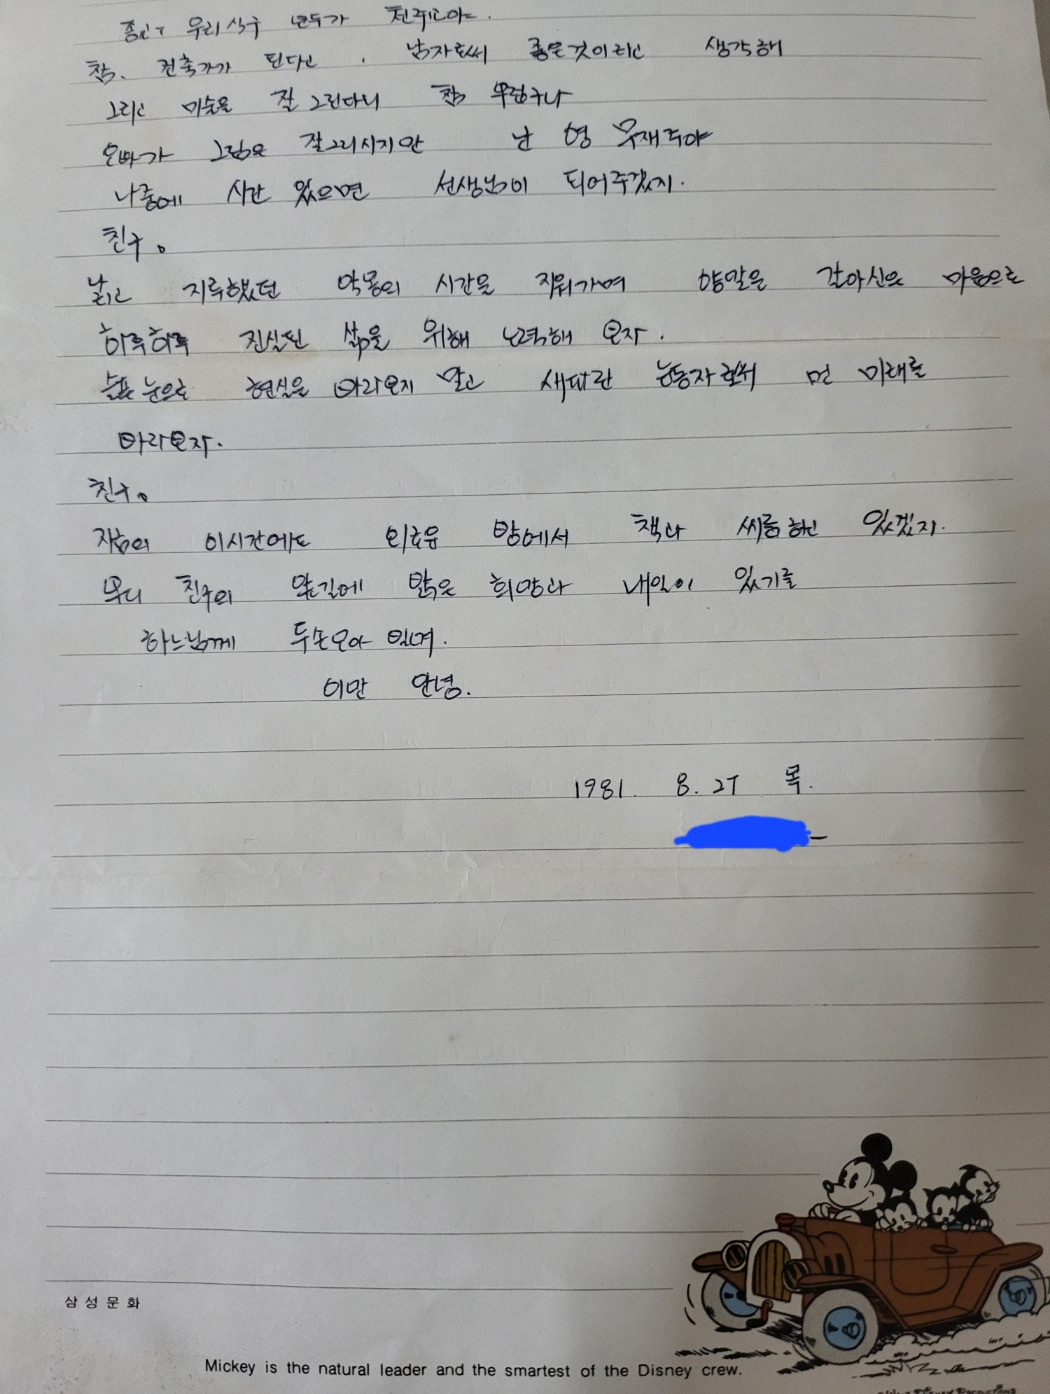 종교는 우리식구 모두가 천주교야.
참. 건축가가 된다고. 남자로써 좋은것이라고 생각해
그리고 미술을 잘 그린다니 참 부럽구나
오빠가 그림은 잘그리시지만 난 영 무재주야
나중에 시간 있으면 선생님이 되어주겠지.
친구.
낡고 지루했던 악몽의 시간을 지워가며 양말을 갈아신은 마음으로
하루하루 진실된 삶을 위해 노력해 보자.
슬픈 눈으로 현실을 바라보지 말고 새파란 눈동자로써 먼 미래를
바라보자.
친구.
지금의 이시간에도 외로운 방에서 책과 씨름하고 있겠지.
우리 친구의 앞길에 밝은 희망과 내일이 있기를
하느님께 두손모아 빌며.
이만 안녕.
1981. 8. 27 목.
삼성문화
Mickey is the natural leader and the smartest of the Disney crew.